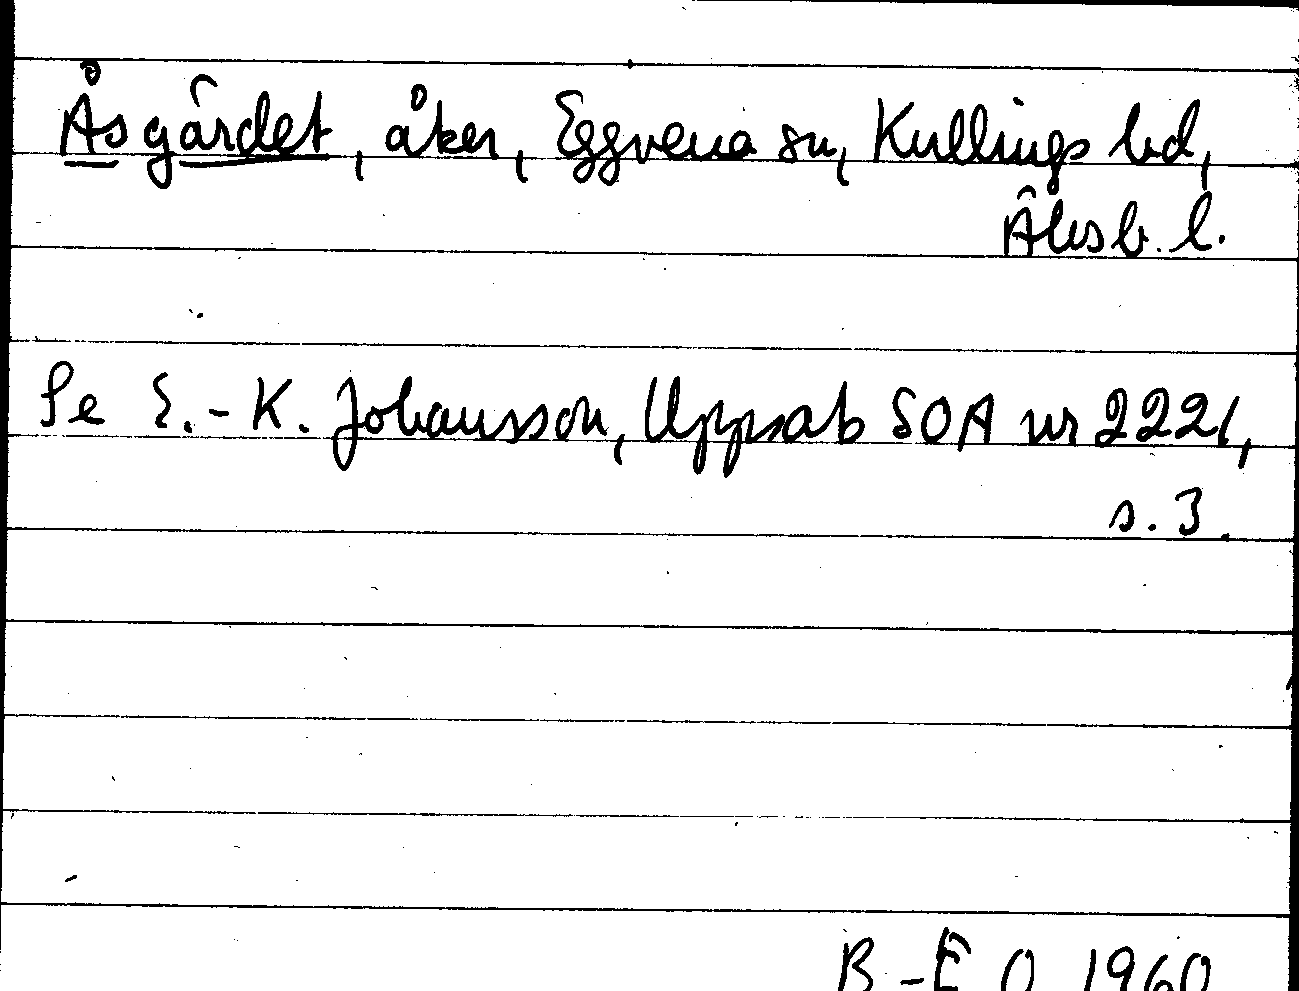 Åsgärdet, åker, Eggvena sn, Kullings hd,
Älvsb. l.
Se E.-K. Johansson, Uppsats SOA nr 2221,
s. 3.
B-E O 1960